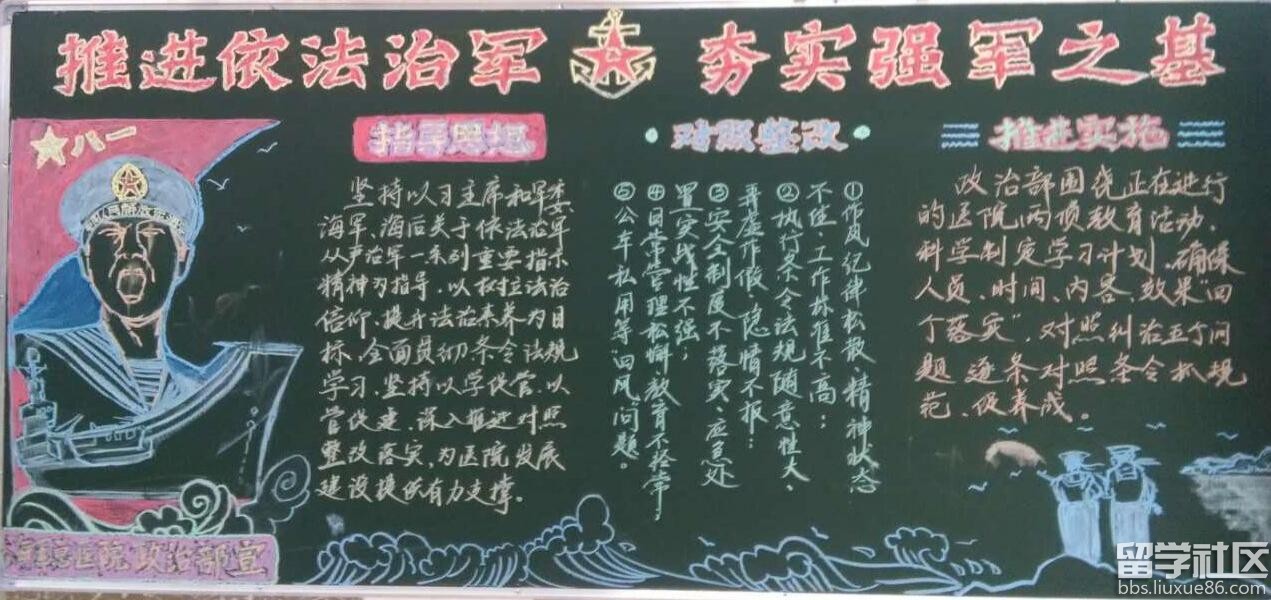 推进依法治军 夯实强军之基
八一
指导思想
坚持以习主席和军委
海军、海后关于依法治军
从严治军一系列重要指示
精神为指导,以树立法治
信仰、提升法治素养为目
标,全面贯彻条令法规
学习,坚持以学促管、以
管促建,深入推进对照
整改落实,为医院发展
建设提供有力支撑。
对照整改
①作风纪律松散、精神状态
不佳、工作标准不高;
②执行条令法规随意性大、
弄虚作假、隐情不报;
③安全制度不落实、应急处
置实战性不强;
④日常管理松懈、教育不经常;
⑤公车私用等“四风”问题。
推进实施
政治部围绕正在进行
的医院两项教育活动,
科学制定学习计划,确保
人员、时间、内容、效果“四
个落实”,对照纠治五个问
题逐条对照条令抓规
范、促养成。
医院政治部宣
留学社区
bbs.liuxue86.com